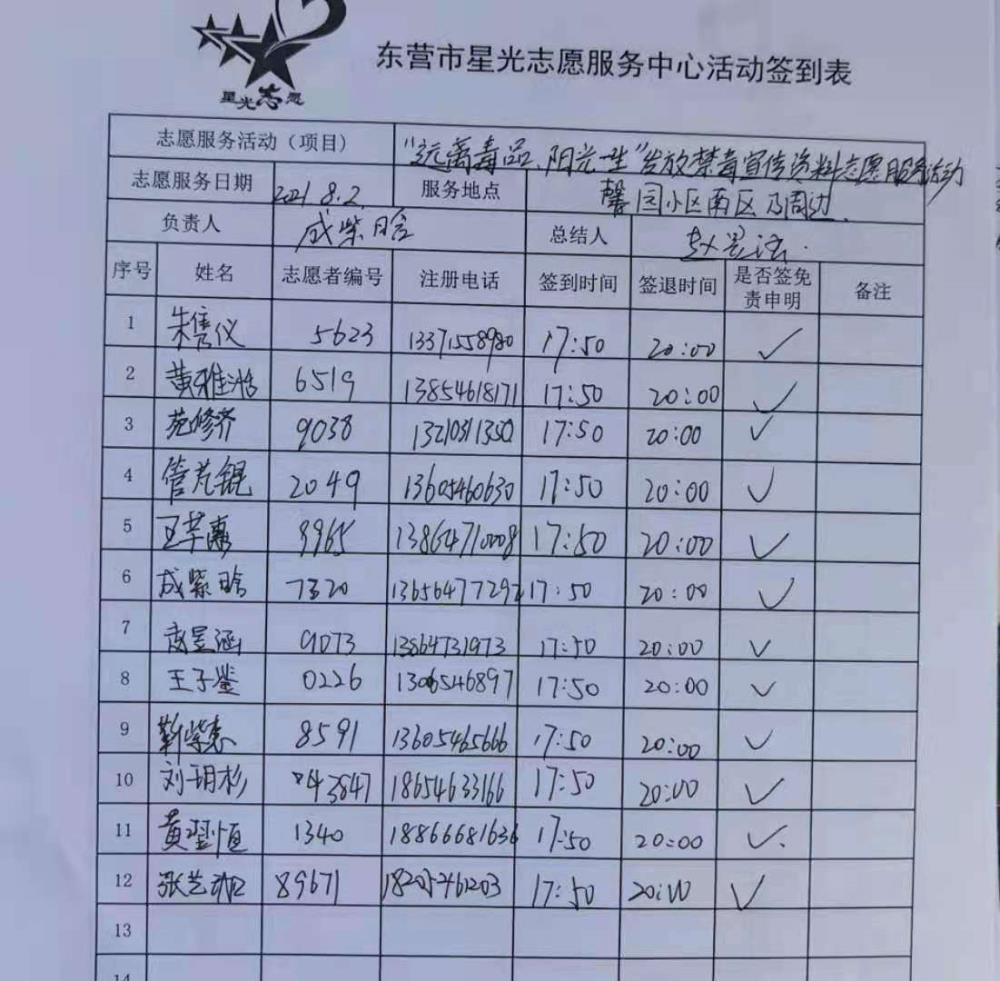 星光志愿
东营市星光志愿服务中心活动签到表
志愿服务活动（项目） "远离毒品、阳光一生"发放禁毒宣传资料志愿服务活动
志愿服务日期 2021.8.2. 服务地点 馨园小区南区及周边.
负责人 成紫晗 总结人 赵昱涵.
序号 姓名 志愿者编号 注册电话 签到时间 签退时间 是否签免责申明 备注
1 朱隽仪 5623 13371558980 17:50 20:00 ✓
2 黄雅洁 6519 13854618171 17:50 20:00 ✓
3 苑修齐 9038 17:50 20:00 ✓
4 管芃锟 2049 13605460630 17:50 20:00 ✓
5 王芊惠 17:50 20:00 ✓
6 成紫晗 7320 17:50 20:00 ✓
7 赵昱涵 9073 13864731973 17:50 20:00 ✓
8 王子鉴 0226 17:50 20:00 ✓
9 靳紫惠 8591 13605465666 17:50 20:00 ✓
10 刘玥杉 43847 18654633166 17:50 20:00 ✓
11 黄翌恒 1340 18866681636 17:50 20:00 ✓.
12 张艺 89671 17:50 20:00 ✓
13
14